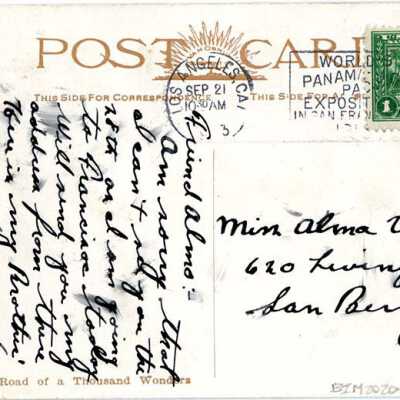 POST CAR
THIS SIDE FOR CORRESPONDENCE
THIS SIDE FOR A
LOS ANGELES, CAL
SEP 21
10 AM
3
WORLD'S
PANAMA
PA
EXPOSIT
IN SAN FRAN
1
Friend Alma:
Am sorry that
I can't stay on the
28th as I am going
to Francisco today
Will send you my
address from there
Here is my Brother
Miss Alma
620 Living
San Ber
Road of a Thousand Wonders
BIM2020